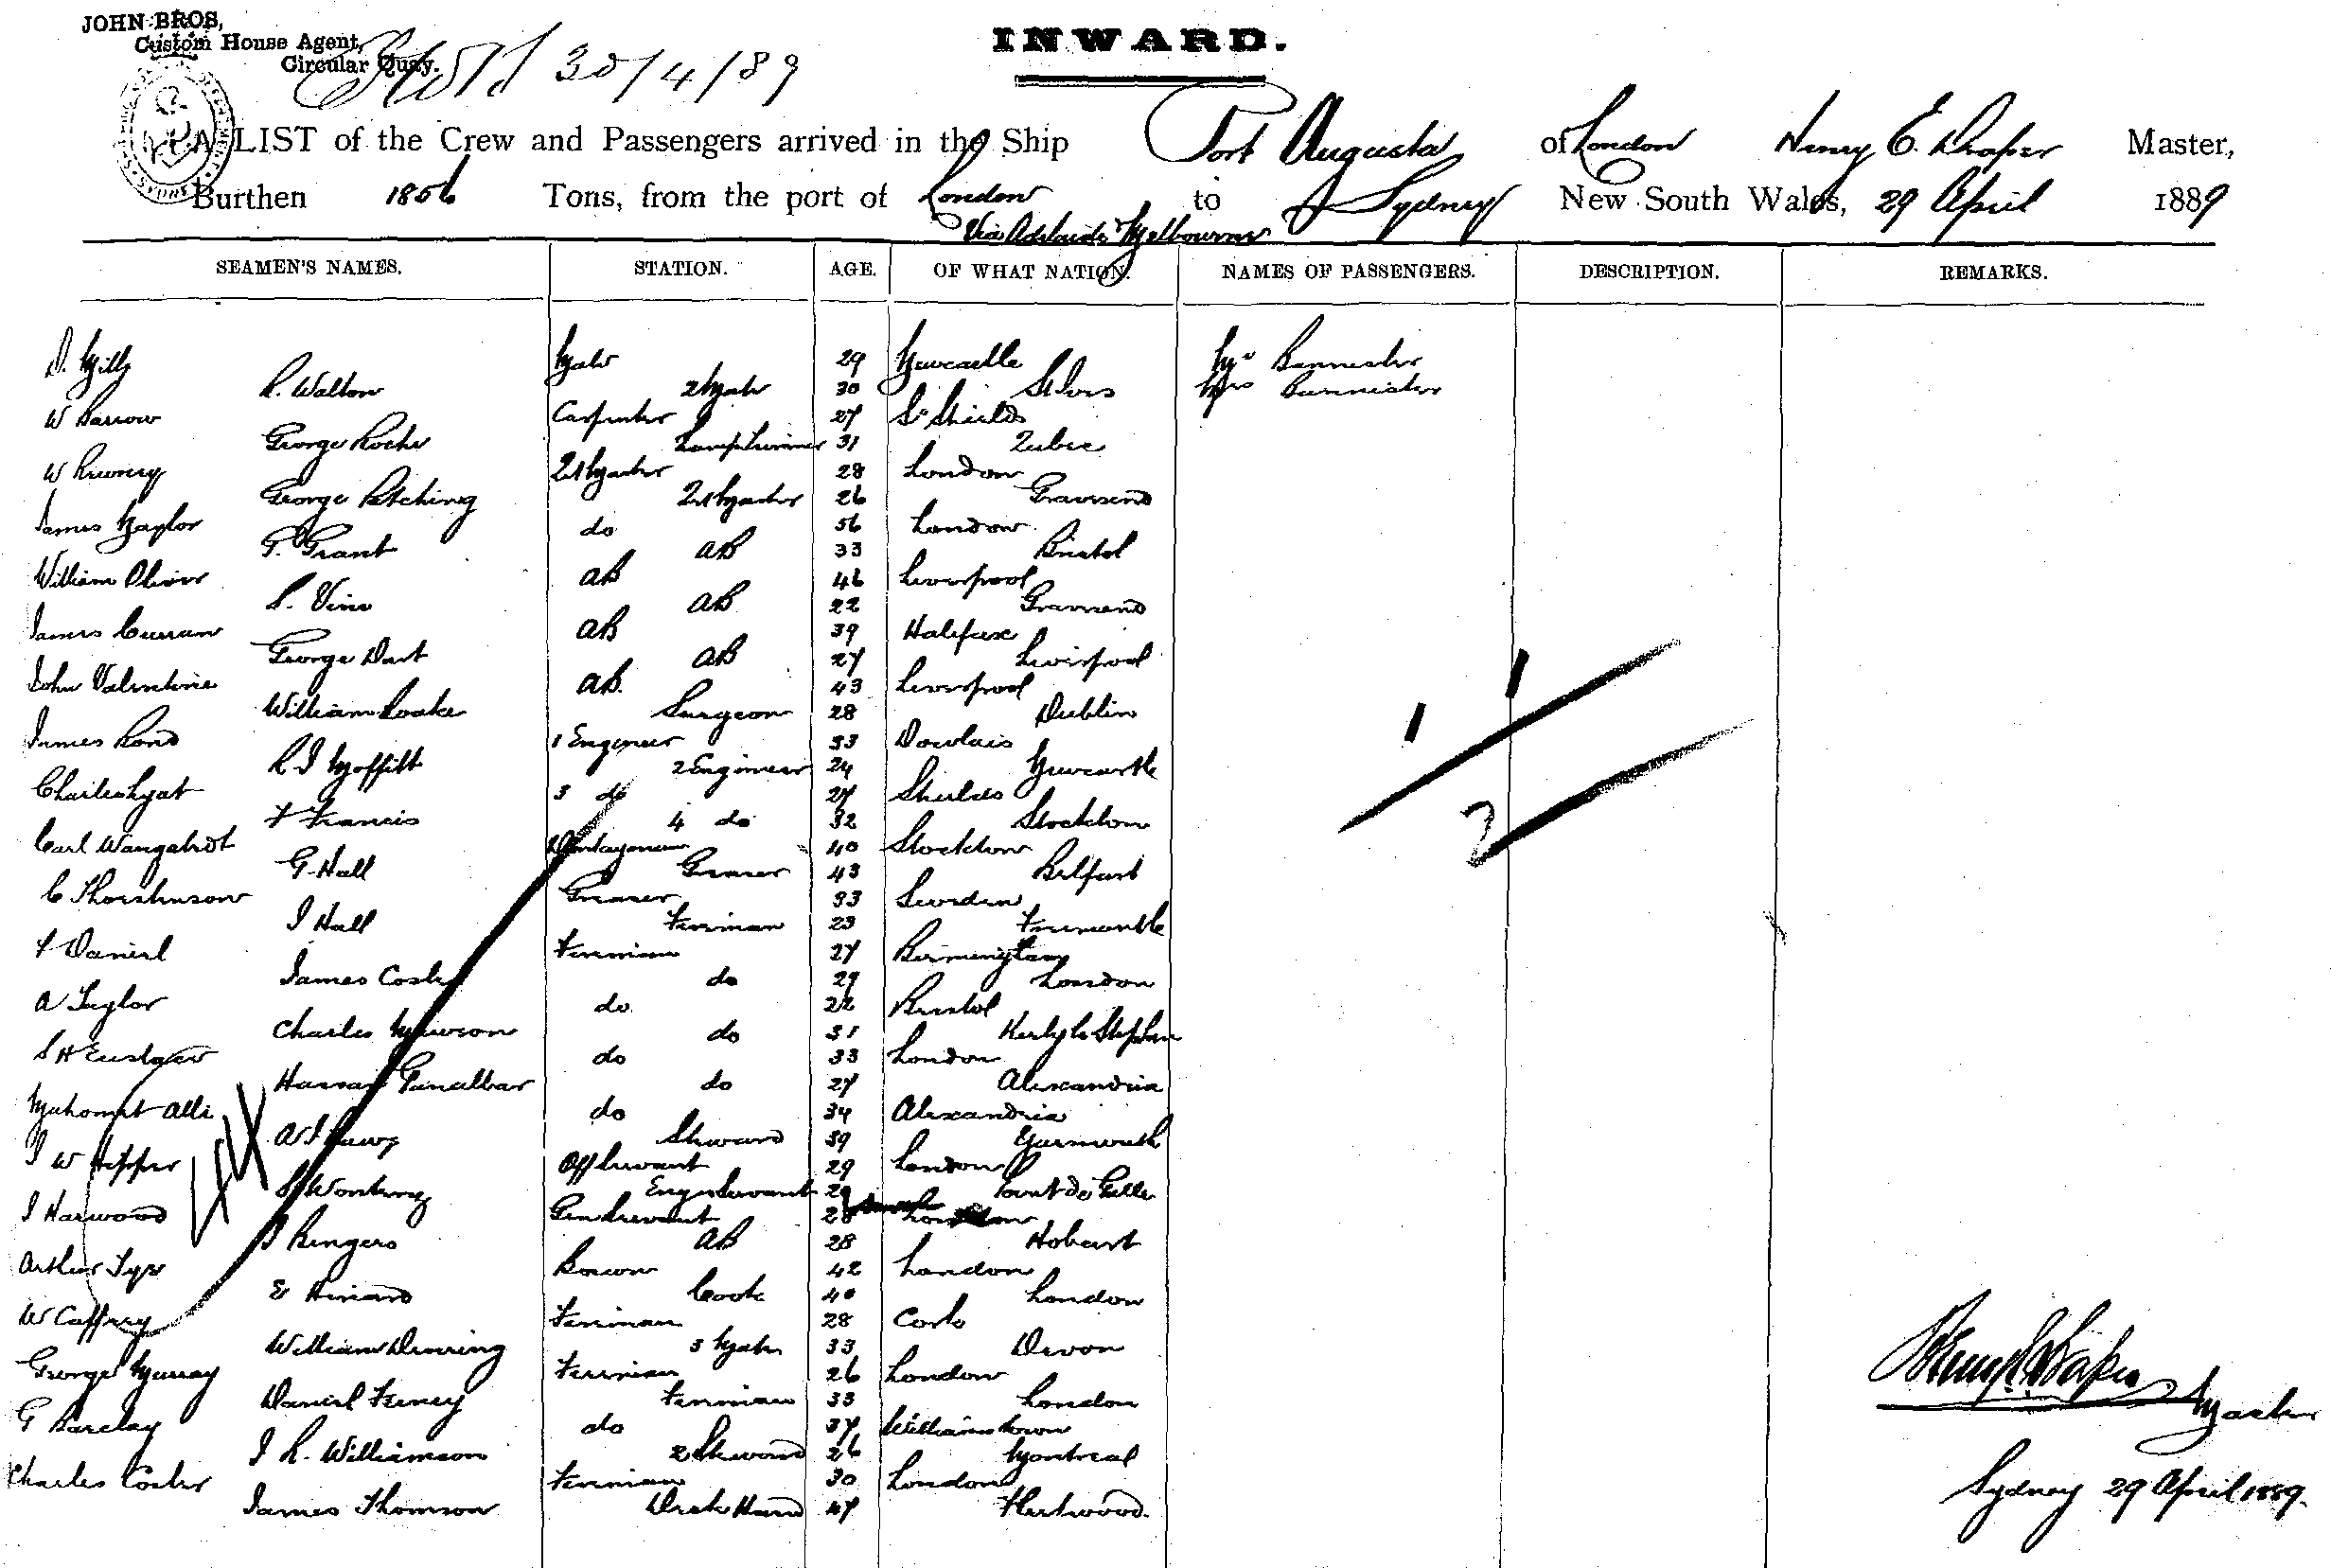 JOHN BROS,
Custom House Agent,
Circular Quay.
30/4/89
INWARD.
A LIST of the Crew and Passengers arrived in the Ship Port Augusta of London Henry E. Draper Master,
Burthen 1856 Tons, from the port of London to Sydney New South Wales, 29 April 1889
Via Adelaide & Melbourne
SEAMEN'S NAMES. STATION. AGE. OF WHAT NATION. NAMES OF PASSENGERS. DESCRIPTION. REMARKS.
D. Mills Mate 29 Newcastle Mr Bannister
R. Walton 2 Mate 30 St Ives Mrs Bannister
W Barrow Carpenter 27 So Shields
George Roche Lamptrimmer 31 Qubec
W 28 London
George Petching 26 Gravesend
James Naylor do 56 London
P. Grant AB 33 Bristol
William Oliver AB 46 Liverpool
S. Vine AB 22 Gravesend
James Curran AB 39 Halifax
George Dart AB 27 Liverpool
John Valentine AB. 43 Liverpool
William Loake Surgeon 28 Dublin
James Bond 1 Engineer 33 Dowlais
R J Moffitt 2 Engineer 24 Newcastle
Charles Lyat 3 do 27 Shields
F Francis 4 do 32 Stockton
Carl 40 Stockton
G Hall Greaser 43 Belfast
C Thorstenson Greaser 33 Sweden
J Hall Fireman 23 Fremantle
F Daniel Fireman 27 Birmingham
James Coster do 29 London
A Taylor do 22 Bristol
Charles Mawson do 31 Stephen
S H Eustace do 33 London
Hassan do 27 Alexandria
Mahomet Alli do 34 Alexandria
A J Laws Steward 39 Yarmouth
J W Hepper Off Servant 29 London
Engr Servant 20 Point de Galle
J Harwood Gen Servant 28 London
J Ringers AB 28 Hobart
Arthur Tye Bosun 42 London
E Hinard Cook 40 London
W Caffrey Fireman 28 Cork
William Dearing 3 Mate 33 Devon
George Murray Fireman 26 London
Daniel Feeney Fireman 33 London
G Barclay do 37 Williamstown
J R. Williamson 2 Steward 26 Montreal
Charles Coster Fireman 30 London
James Thomson Deck Hand 47 Fleetwood.
1 1
2
44
Henry E Draper
Master
Sydney 29 April 1889.